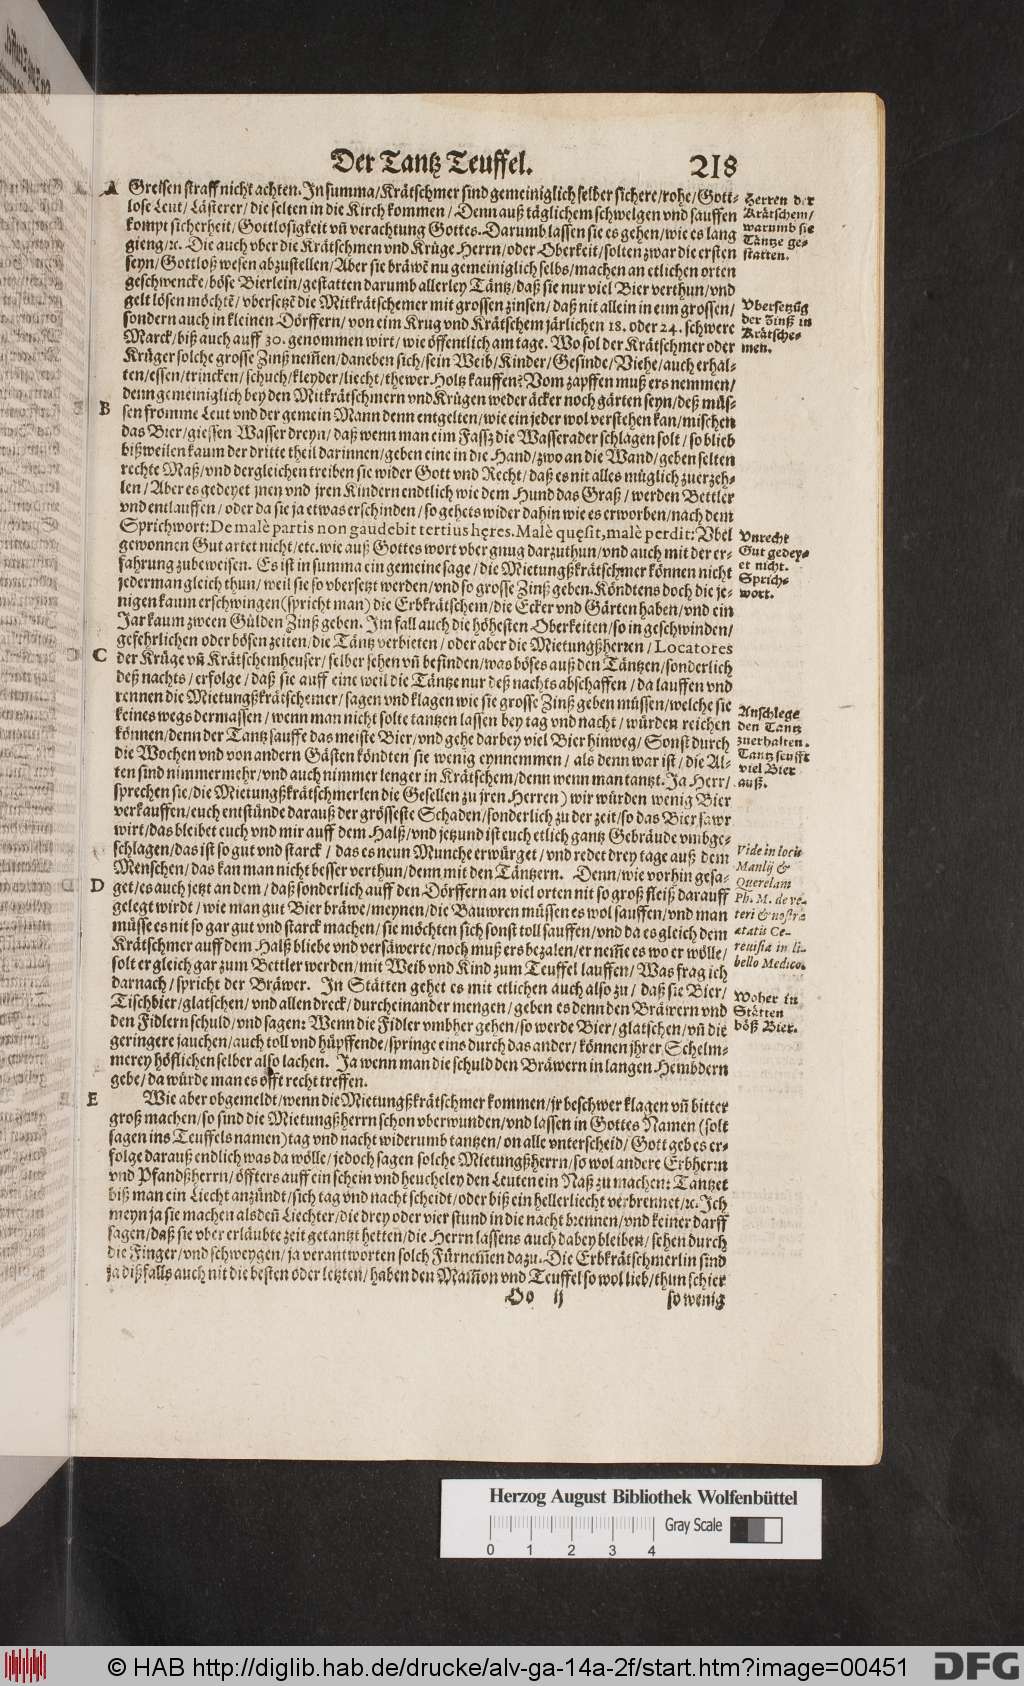 Der Tantz Teuffel. 218
A Greisen straff nicht achten. In summa/ Krätschmer sind gemeiniglich selber sichere/ rohe/ Gott-
lose Leut/ Lästerer/ die selten in die Kirch kommen/ Denn auß täglichem schwelgen vnd sauffen
kompt sicherheit/ Gottlosigkeit vñ verachtung Gottes. Darumb lassen sie es gehen/ wie es lang
gieng/ ꝛc. Die auch vber die Krätschmen vnd Krüge Herrn/ oder Oberkeit/ solten zwar die ersten
seyn/ Gottloß wesen abzustellen/ Aber sie bräwẽ nu gemeiniglich selbs/ machen an etlichen orten
geschwencke/ böse Bierlein/ gestatten darumb allerley Täntz/ daß sie nur viel Bier verthun/ vnd
gelt lösen möchtẽ/ vbersetzẽ die Mitkrätschemer mit grossen zinsen/ daß nit allein in eim grossen/
sondern auch in kleinen Dörffern/ von eim Krug vnd Krätschem järlichen 18. oder 24. schwere
Marck/ biß auch auff 30. genommen wirt/ wie öffentlich am tage. Wo sol der Krätschmer oder
Krüger solche grosse Zinß nem̃en/ daneben sich/ sein Weib/ Kinder/ Gesinde/ Viehe/ auch erhal-
ten/ essen/ trincken/ schuch/ kleyder/ liecht/ thewer Holtz kauffen? Vom zapffen muß ers nemmen/
denn gemeiniglich bey den Mitkrätschmern vnd Krügen weder äcker noch gärten seyn/ deß müs-
B sen fromme Leut vnd der gemein Mann denn entgelten/ wie ein jeder wol verstehen kan/ mischen
das Bier/ giessen Wasser dreyn/ daß wenn man eim Fassz die Wasserader schlagen solt/ so blieb
bißweilen kaum der dritte theil darinnen/ geben eine in die Hand/ zwo an die Wand/ geben selten
rechte Maß/ vnd dergleichen treiben sie wider Gott vnd Recht/ daß es nit alles müglich zuerzeh-
len/ Aber es gedeyet jnen vnd jren Kindern endtlich wie dem Hund das Graß/ werden Bettler
vnd entlauffen/ oder da sie ja etwas erschinden/ so gehets wider dahin wie es erworben/ nach dem
Sprichwort: De malè partis non gaudebit tertius hęres. Malè quęsit, malè perdit: Vbel
gewonnen Gut artet nicht/ etc. wie auß Gottes wort vber gnug darzuthun/ vnd auch mit der er-
fahrung zubeweisen. Es ist in summa ein gemeine sage/ die Mietungßkrätschmer können nicht
jederman gleich thun/ weil sie so vbersetzt werden/ vnd so grosse Zinß geben. Köndtens doch die je-
nigen kaum erschwingen (spricht man) die Erbkrätschem/ die Ecker vnd Gärten haben/ vnd ein
Jar kaum zween Gülden Zinß geben. Im fall auch die höhesten Oberkeiten/ so in geschwinden/
gefehrlichen oder bösen zeiten/ die Täntz verbieten/ oder aber die Mietungßherren/ Locatores
C der Krüge vñ Krätschemheuser/ selber sehen vñ befinden/ was böses auß den Täntzen/ sonderlich
deß nachts/ erfolge/ daß sie auff eine weil die Täntze nur deß nachts abschaffen/ da lauffen vnd
rennen die Mietungßkrätschemer/ sagen vnd klagen wie sie grosse Zinß geben müssen/ welche sie
keines wegs dermassen/ wenn man nicht solte tantzen lassen bey tag vnd nacht/ würden reichen
können/ denn der Tantz sauffe das meiste Bier/ vnd gehe darbey viel Bier hinweg/ Sonst durch
die Wochen vnd von andern Gästen köndten sie wenig eynnemmen/ als denn war ist/ die Al-
ten sind nimmermehr/ vnd auch nimmer lenger in Krätschem/ denn wenn man tantzt. Ja Herr/
sprechen sie/ die Mietungßkrätschmer len die Gesellen zu jren Herren) wir würden wenig Bier
verkauffen/ euch entstünde darauß der grösseste Schaden/ sonderlich zu der zeit/ so das Bier sawr
wirt/ das bleibet euch vnd mir auff dem Halß/ vnd jetzund ist euch etlich gantz Gebräude vmbge-
schlagen/ das ist so gut vnd starck/ das es neun Munche erwürget/ vnd redet drey tage auß dem
Menschen/ das kan man nicht besser verthun/ denn mit den Täntzern. Denn/ wie vorhin gesa-
D get/ es auch jetzt an dem/ daß sonderlich auff den Dörffern an viel orten nit so groß fleiß darauff
gelegt wirdt/ wie man gut Bier bräwe/ meynen/ die Bauwren müssen es wol sauffen/ vnd man
müsse es nit so gar gut vnd starck machen/ sie möchten sich sonst toll sauffen/ vnd da es gleich dem
Krätschmer auff dem Halß bliebe vnd versäwerte/ noch muß ers bezalen/ er nem̃e es wo er wölle/
solt er gleich gar zum Bettler werden/ mit Weib vnd Kind zum Teuffel lauffen/ Was frag ich
darnach/ spricht der Bräwer. In Stätten gehet es mit etlichen auch also zu/ daß sie Bier/
Tischbier/ glatschen/ vnd allen dreck/ durcheinander mengen/ geben es denn den Bräwern vnd
den Fidlern schuld/ vnd sagen: Wenn die Fidler vmbher gehen/ so werde Bier/ glatschen/ vñ die
geringere jauchen/ auch toll vnd hüpffende/ springe eins durch das ander/ können jhrer Schelm-
merey höflichen selber also lachen. Ja wenn man die schuld den Bräwern in langen Hembdern
gebe/ da würde man es offt recht treffen.
E Wie aber obgemeldt/ wenn die Mietungßkrätschmer kommen/ jr beschwer klagen vñ bitter
groß machen/ so sind die Mietungßherrn schon vberwunden/ vnd lassen in Gottes Namen (solt
sagen ins Teuffels namen) tag vnd nacht widerumb tantzen/ on alle vnterscheid/ Gott geb es er-
folge darauß endlich was da wölle/ jedoch sagen solche Mietungßherrn/ so wol andere Erbherrn
vnd Pfandßherrn/ öffters auff ein schein vnd heucheley den Leuten ein Naß zu machen: Tantzet
biß man ein Liecht anzündt/ sich tag vnd nacht scheidt/ oder biß ein hellerliecht verbrennet/ ꝛc. Ich
meyn ja sie machen alsdeñ Liechter/ die drey oder vier stund in die nacht brennen/ vnd keiner darff
sagen/ daß sie vber erläubte zeit getantzt hetten/ die Herrn lassens auch dabey bleiben/ sehen durch
die Finger/ vnd schweygen/ ja verantworten solch Fürnem̃en dazu. Die Erbkrätschmerlin sind
ja dißfalls auch nit die besten oder letzten/ haben den Mam̃on vnd Teuffel so wol lieb/ thun schier
Oo ij so wenig
Herren der
Krätschem/
warumb sie
Täntze ge-
statten.
Vbersetzũg
der Zinß in
Krätsche-
men.
Vnrecht
Gut gedey-
et nicht.
Sprich-
wort.
Anschlege
den Tantz
zuerhalten.
Tantz seufft
viel Bier
auß.
Vide in locis
Manlij &
Querelam
Ph. M. de ve-
teri & nostra
ætatis Ce-
reuisia in li-
bello Medico.
Woher in
Stätten
böß Bier.
Herzog August Bibliothek Wolfenbüttel
Gray Scale
0 1 2 3 4
© HAB http://diglib.hab.de/drucke/alv-ga-14a-2f/start.htm?image=00451
DFG